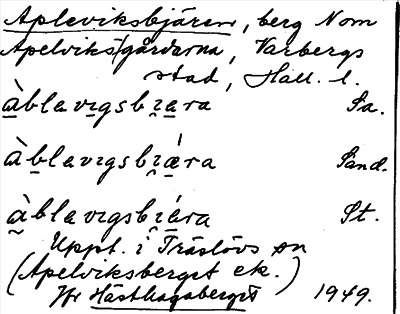 Apleviksbjären, berg N om
Apelviksgårdarna, Varbergs
stad, Hall. l.
àblavıgsbı̯æra Sa.
àblavıgsbı̯ǽra Sand.
àblavıgsbı̯ǽra St.
Uppt. i Träslövs sn
(Apelviksberget ek.)
Jfr Hästhagaberget 1949.